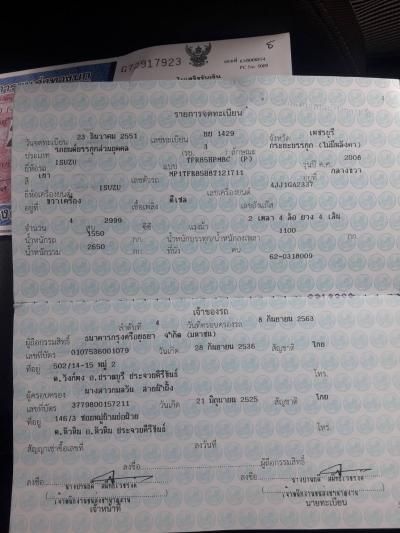 G72917923
รายการจดทะเบียน
วันจดทะเบียน 23 ธันวาคม 2551 เลขทะเบียน 1429 จังหวัด เพชรบุรี
ประเภท รถยนต์บรรทุกส่วนบุคคล (รย. 3 ) ลักษณะ กระบะบรรทุก (ไม่มีหลังคา)
ยี่ห้อรถ ISUZU แบบ TFR85HPMBC (P) รุ่นปี ค.ศ. 2008
สี เทา เลขตัวรถ MP1TFR85H87121711 อยู่ที่ กลางขวา
ยี่ห้อเครื่องยนต์ ISUZU เลขเครื่องยนต์ 4JJ1GA2337
อยู่ที่ ขวาเครื่อง เชื้อเพลิง ดีเซล เลขถังแก๊ส
จำนวน 4 สูบ 2999 ซีซี แรงม้า 2 เพลา 4 ล้อ ยาง 4 เส้น
น้ำหนักรถ 1550 กก. น้ำหนักบรรทุก/น้ำหนักลงเพลา 1100 กก.
น้ำหนักรวม 2650 กก. ที่นั่ง คน
62-0318009
เจ้าของรถ
ลำดับที่ 4 วันที่ครอบครองรถ 8 กันยายน 2563
ผู้ถือกรรมสิทธิ์ ธนาคารกรุงศรีอยุธยา จำกัด (มหาชน)
เลขที่บัตร 0107536001079 วันเกิด 28 กันยายน 2536 สัญชาติ ไทย
ที่อยู่ 502/14-15 หมู่ 2
ต.วังก์พง อ.ปราณบุรี ประจวบคีรีขันธ์ โทร.
ผู้ครอบครอง นางสาวกมลวัน
เลขที่บัตร 3779800157211 วันเกิด 21 มิถุนายน 2525 สัญชาติ ไทย
ที่อยู่ 146/3
ต.หัวหิน อ.หัวหิน ประจวบคีรีขันธ์ โทร.
สัญญาเช่าซื้อเลขที่ ลงวันที่
ลงชื่อ ผู้ถือกรรมสิทธิ์
ลงชื่อ ลงชื่อ
เจ้าหน้าที่ นายทะเบียน